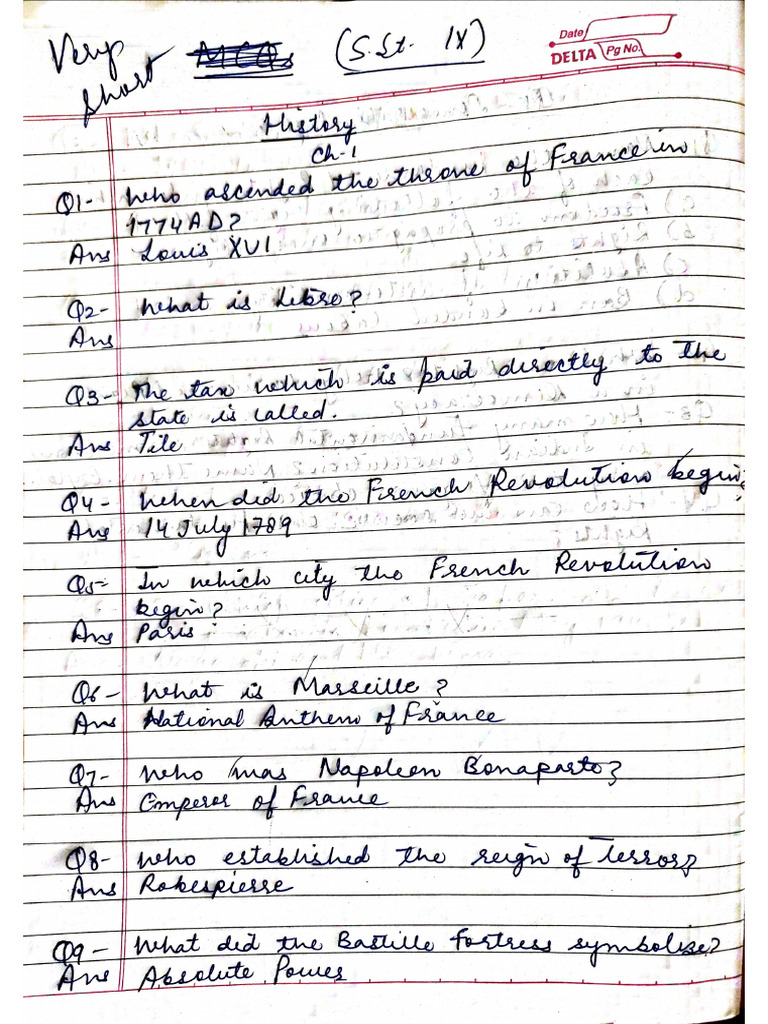 Very
short MCQs (S.St. IX)
Date
DELTA Pg No.
History
Ch-1
Q1- Who ascended the throne of France in
1774 AD?
Ans Louis XVI
Q2- What is Libre?
Ans
Q3- The tax which is paid directly to the
state is called.
Ans Tile
Q4- When did the French Revolution begin?
Ans 14 July 1789
Q5- In which city the French Revolution
begin?
Ans Paris
Q6- What is Marseille?
Ans National Anthem of France
Q7- Who was Napoleon Bonaparte?
Ans Emperor of France
Q8- Who established the reign of terror?
Ans Robespierre
Q9- What did the Bastille fortress symbolise?
Ans Absolute Power